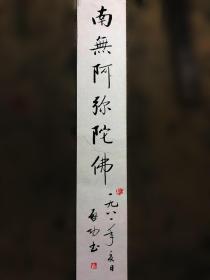 南無阿弥陀佛
一九八一年夏日
启功书